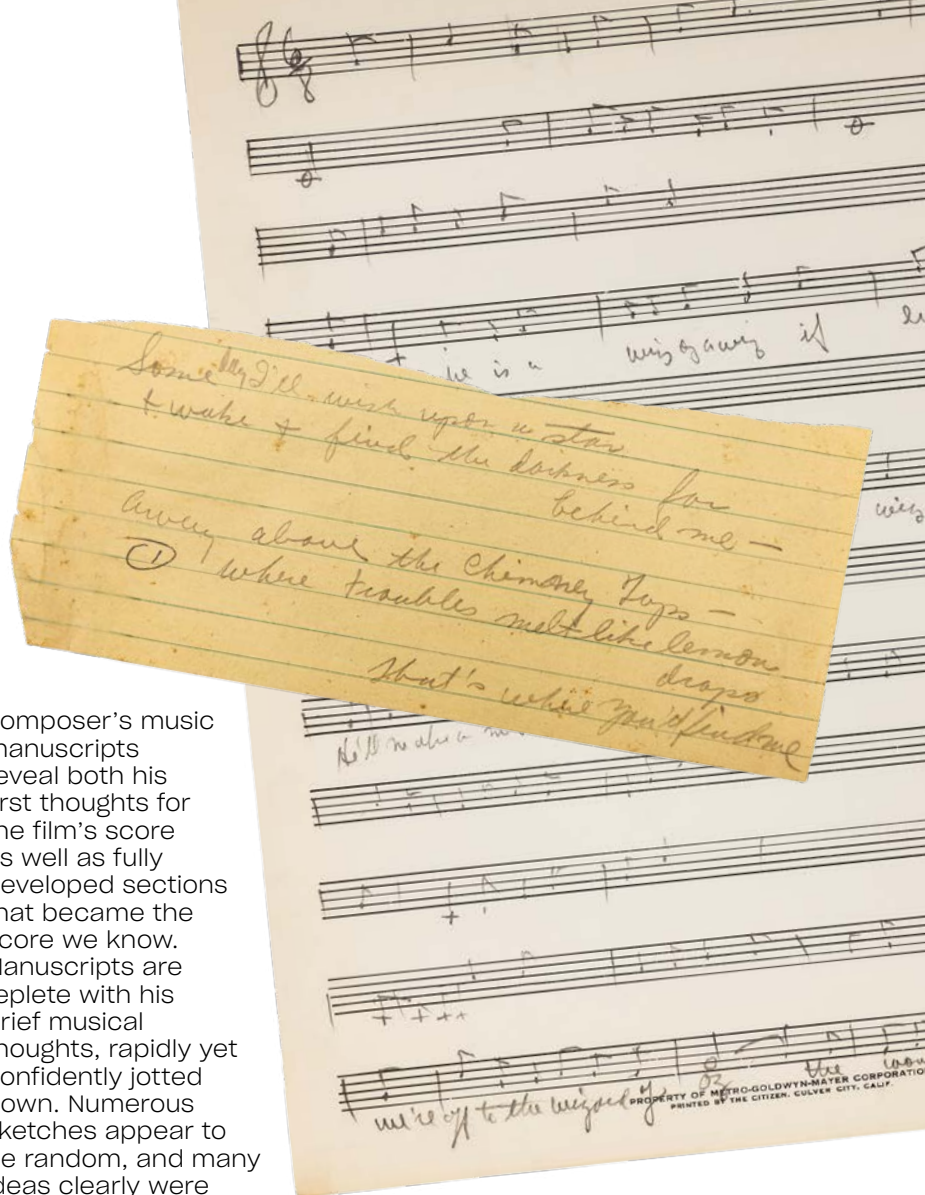 he is a wiz of a wiz if
Some day I'll wish upon a star
+ wake + find the darkness far
behind me —
away above the Chimney Tops —
① where troubles melt like lemon
drops
that's where you'd find me
He'll make a
we're off to the wizard of oz the
PROPERTY OF METRO-GOLDWYN-MAYER CORPORATIO
PRINTED BY THE CITIZEN. CULVER CITY, CALIF.
omposer's music
anuscripts
eveal both his
rst thoughts for
he film's score
s well as fully
eveloped sections
hat became the
core we know.
anuscripts are
eplete with his
rief musical
houghts, rapidly yet
onfidently jotted
own. Numerous
ketches appear to
e random, and many
deas clearly were